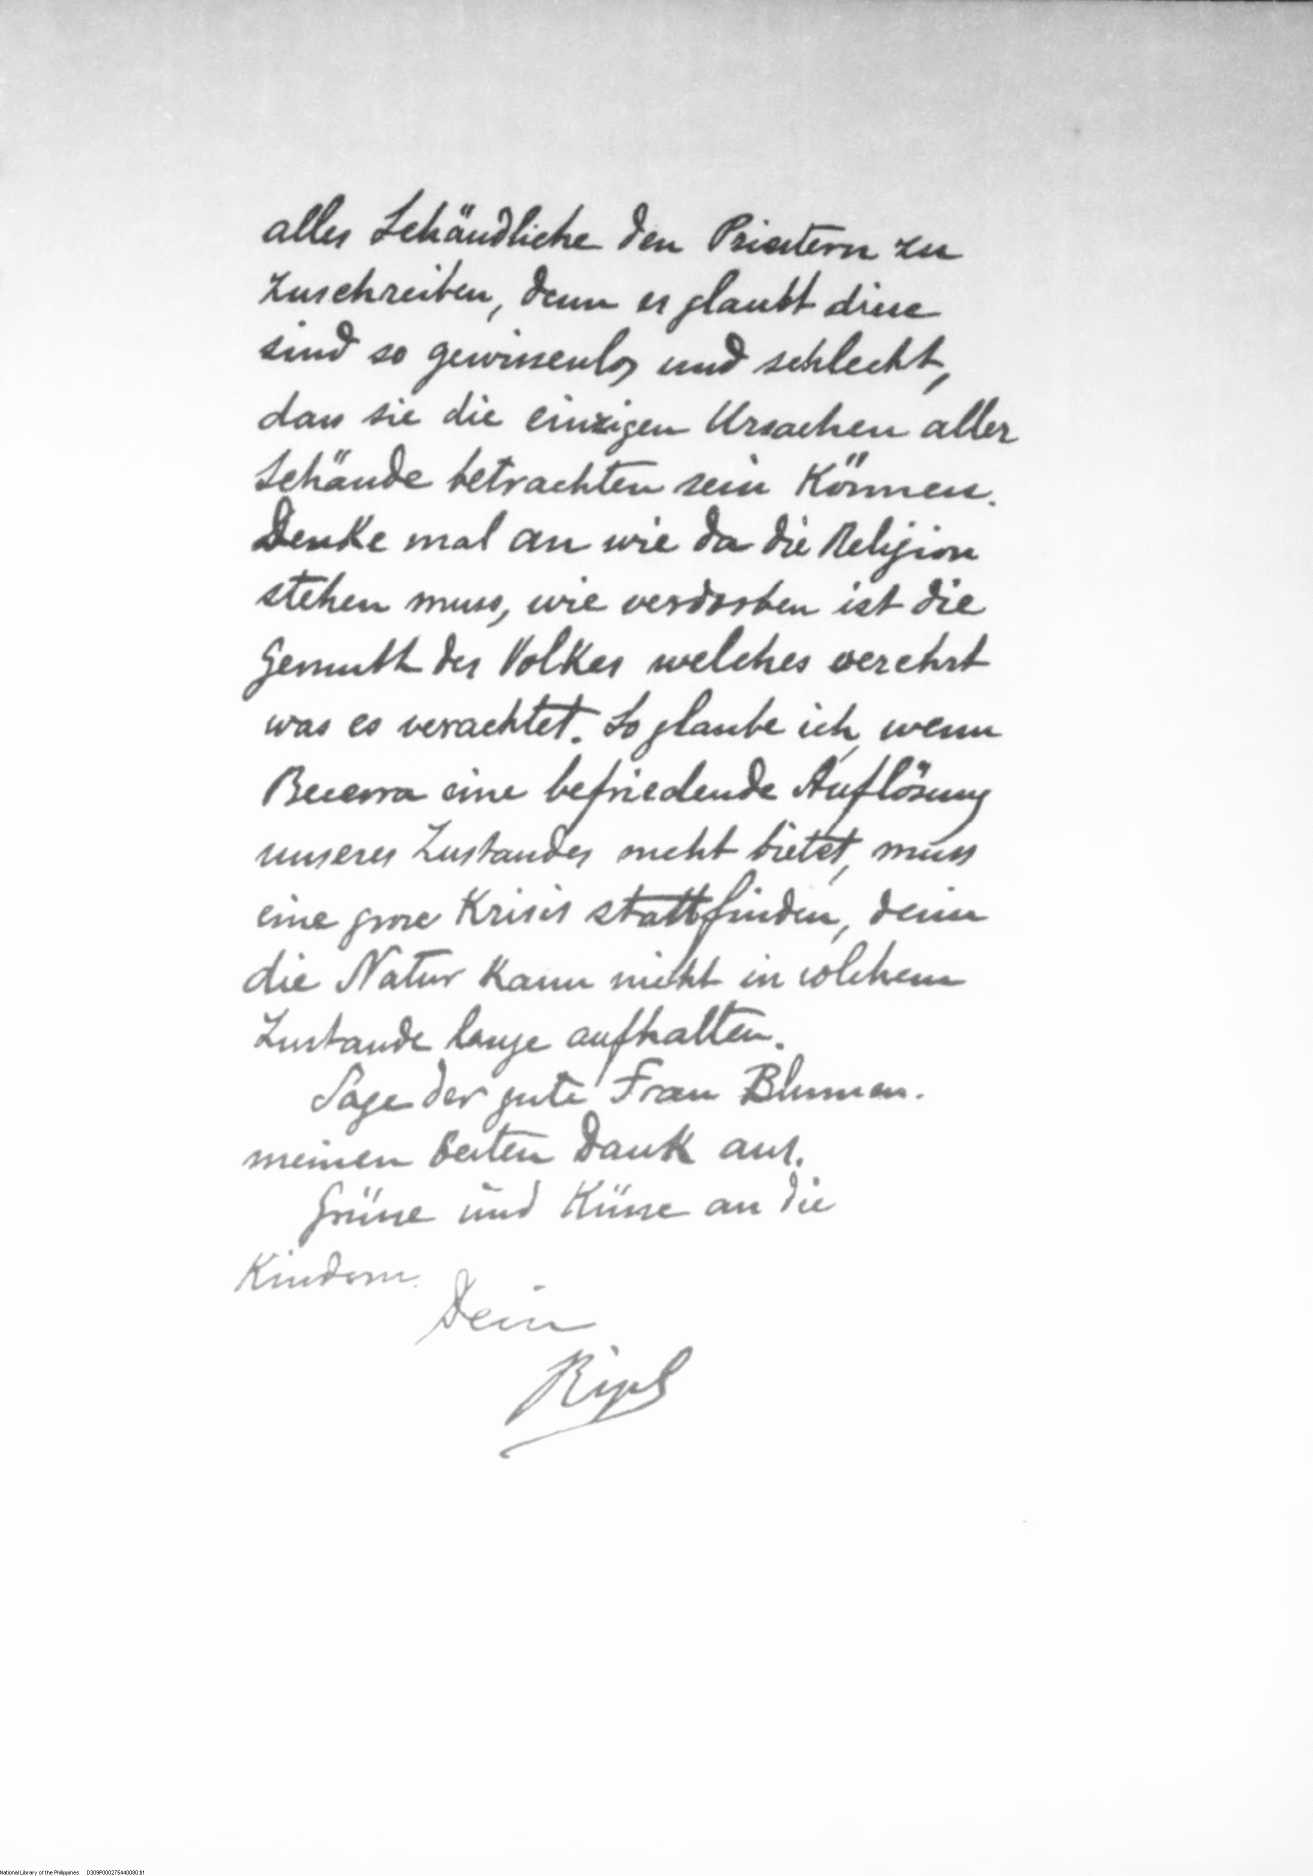 alles Schändliche den Priestern zu
zuschreiben, denn es glaubt diese
sind so gewissenlos und schlecht,
dass sie die einzigen Ursachen aller
Schände betrachten sein Können.
Denke mal an wie da die Religion
stehen muss, wie verdorben ist die
Gemuth des Volkes welches verehrt
was es verachtet. So glaube ich, wenn
Becerra eine befriedende Auflösung
unseres Zustandes nicht bietet, muss
eine grose Krisis stattfinden, denn
die Natur Kann nicht in solchem
Zustande lange aufhalten.
Sage der gute Frau Blumen.
meinen besten Dank aus.
Grüsse und Küsse an die
Kindern.
Dein
Rizal
National Library of the Philippines